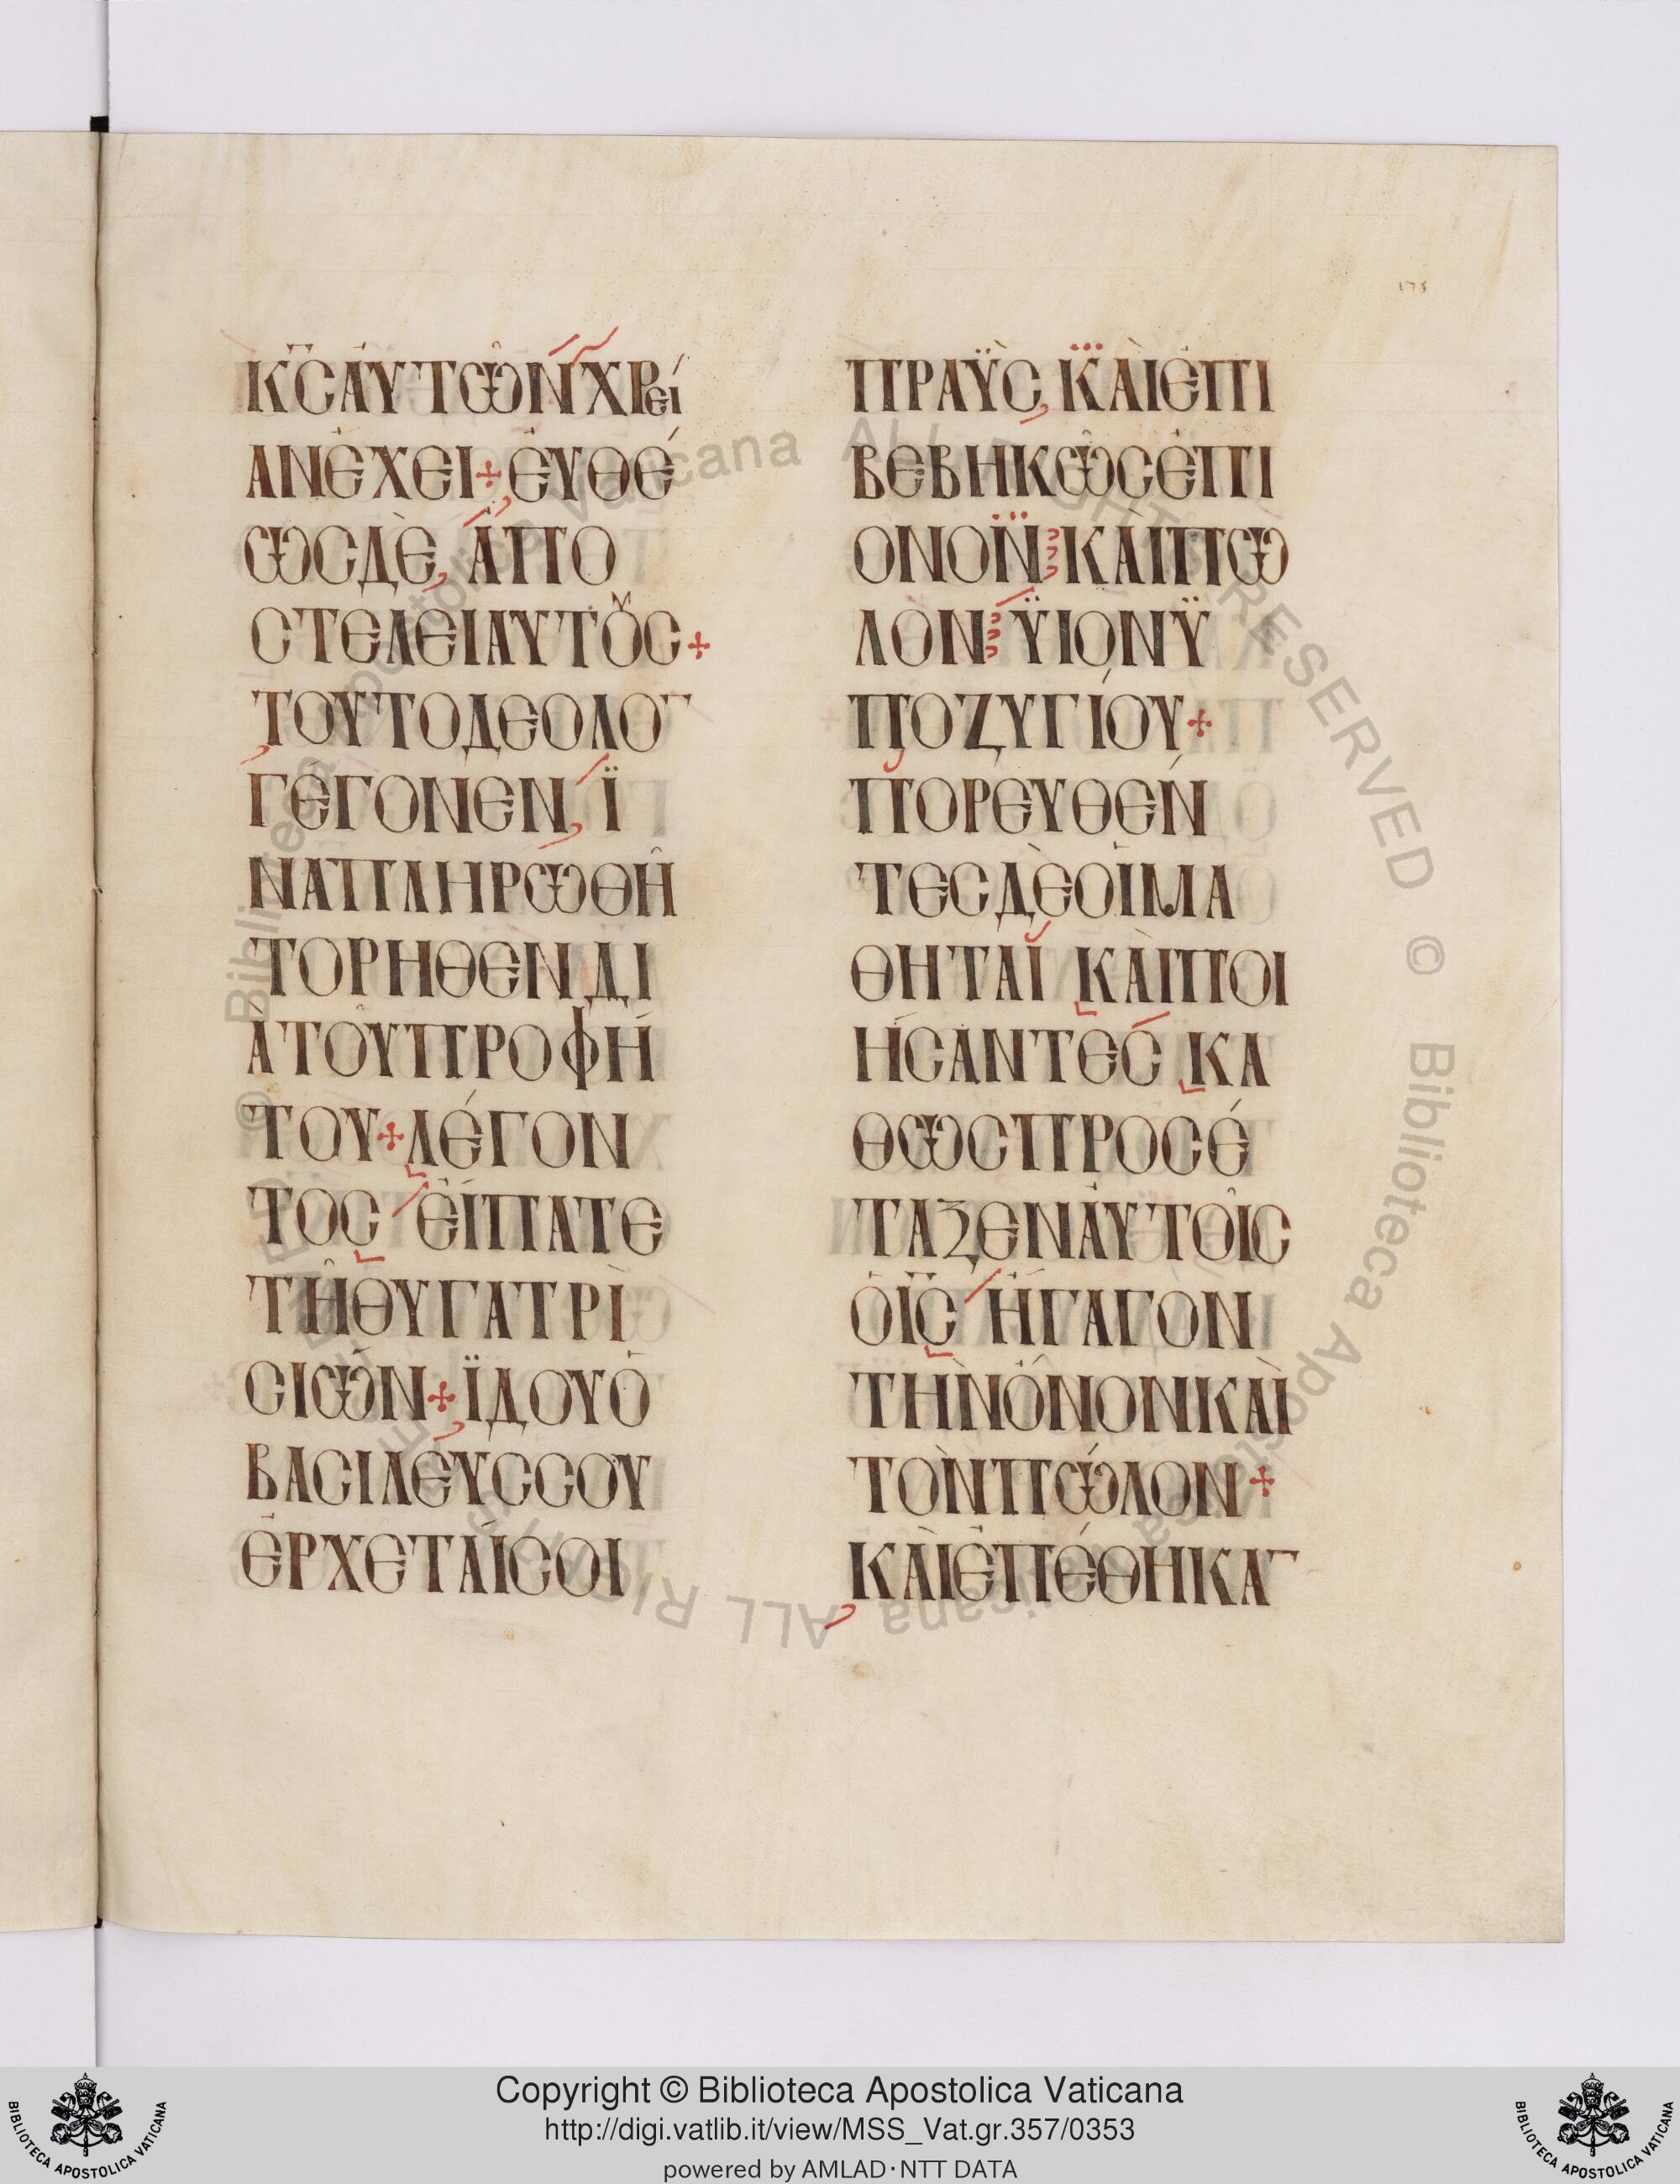 175
Κ̅Σ̅ΑΥΤΩ͂ΝΧΡεί
ΑΝἘΧΕΙ+ἘΥΘΈ
ΩΣΔῈ,ἈΠΟ
ΣΤΕΛΕΙΑΥΤȢ̀Σ+
ΤΟΥΤΟΔΕΟΛΟ¯
ΓῈΓΟΝΕΝ,Ϊ
ΝΑΠΛΗΡΩΘΗ͂
ΤΟΡΗΘΕΝΔΙ
ᾺΤΟΥ͂ΠΡΟΦΉ
ΤΟΥ+ΛΈΓΟΝ
ΤΟΣ ἘΊΠΑΤΕ
ΤΗ͂ΘΥΓΑΤΡῚ
ΣΙΏΝ+ΪΔΟΥὉ
ΒΑΣΙΛΕΎΣΣΟΥ
ἘΡΧΕΤΑΊΣΟΙ
ΠΡΑΫ̀Σ,ΚᾺΙἘΠΙ
ΒΕΒΗΚΩ͂ΣἘΠΙ
ΟΝΟΝ⁝ΚΑΙΠΩ
ΛΟΝ⁝ΫΙΟΝΫ
ΠΟΖΥΓΊΟΥ+
ΠΟΡΕΥΘΈΝ
ΤΕΣΔῈΟἹΜΑ
ΘΗΤΑῚ ΚᾺΙΠΟΙ
ΉΣΑΝΤΕΣ ΚΑ
ΘΩΣΠΡΟΣΈ
ΤΑΞΕΝἈΥΤΟΙ͂Σ
ὉΙ̅Σ̅ ἬΓΑΓΟΝ
ΤῊΝὌΝΟΝΚΑῚ
ΤῸΝΠΩ͂ΛΟΝ+
ΚᾺΙἘΠΈΘΗΚΑ¯
Copyright © Biblioteca Apostolica Vaticana
http://digi.vatlib.it/view/MSS_Vat.gr.357/0353
powered by AMLAD·NTT DATA
BIBLIOTECA APOSTOLICA VATICANA
BIBLIOTECA APOSTOLICA VATICANA